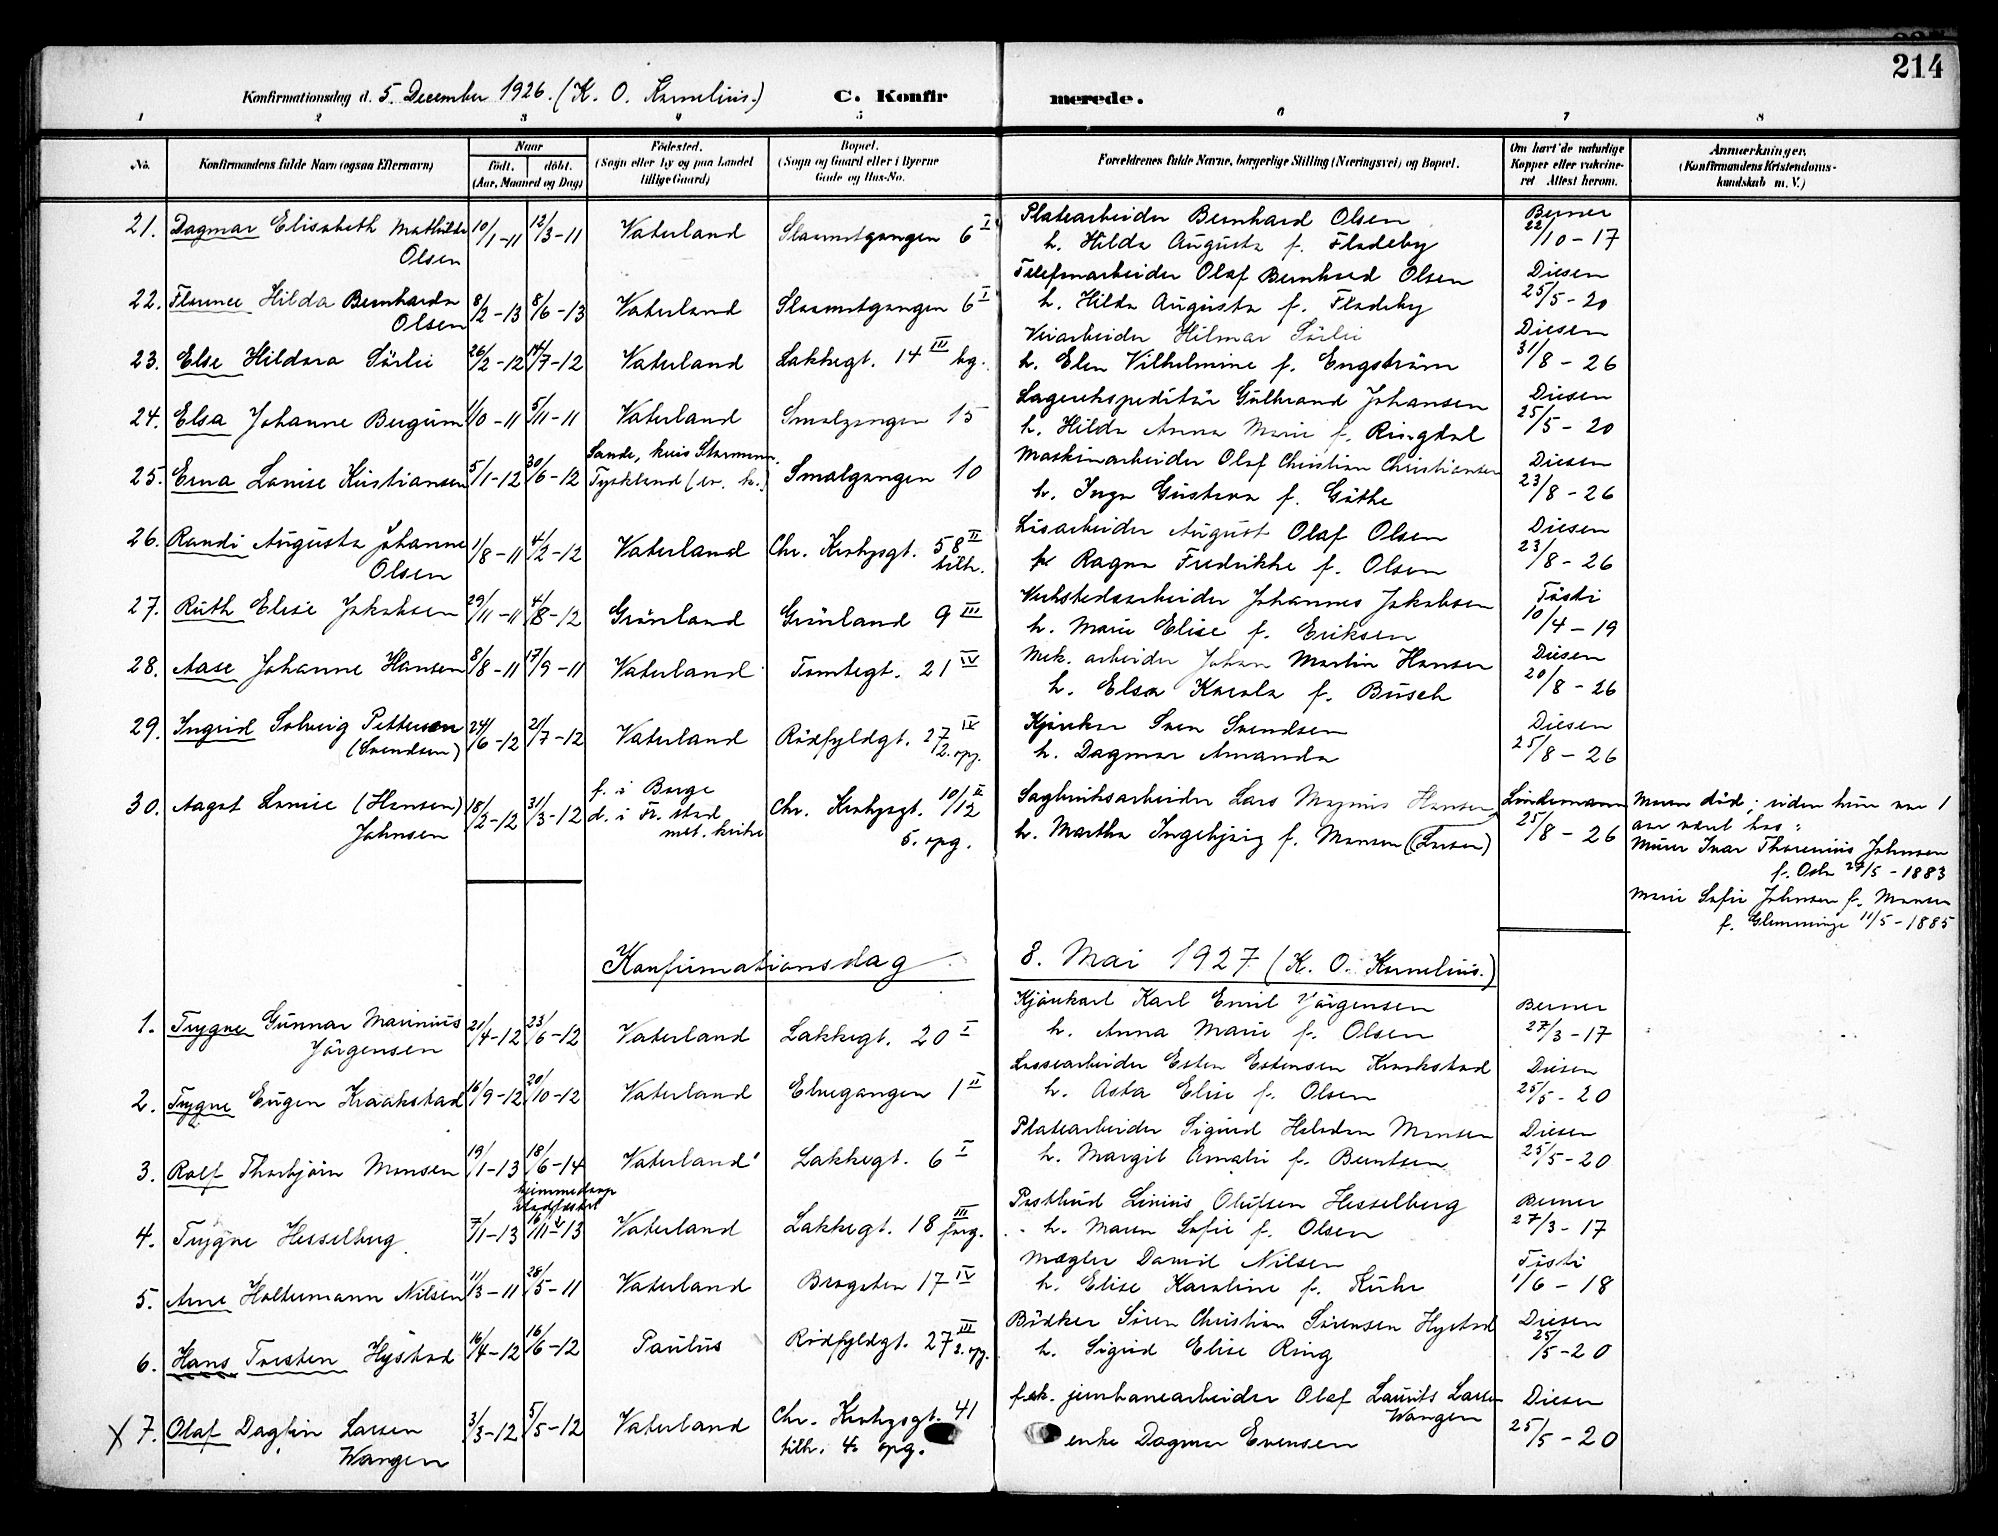 214
Konfirmationsdag d. 5. December 1926. (K. O. Kornelius.) C. Konfirmerede.
1 2 3 4 5 6 7 8
No. Konfirmandens fulde Navn (ogsaa Efternavn) Naar født. døbt. (Aar, Maaned og Dag) Fødested. (Sogn eller By og paa Landet tillige Gaard) Bopæl. (Sogn og Gaard eller i Byerne Gade og Hus-No. Forældrenes fulde Navne, borgerlige Stilling (Næringsvei) og Bopæl. Om havt de naturlige Kopper eller vakcineret Attest herom. Anmærkninger. (Konfirmandens Kristendomskundskab m. V.)
21. Dagmar Elisabeth Mathilde Olsen 10/1-11 12/3-11 Vaterland 6 I Platearbeider Bernhard Olsen Berner
h. Hilda Augusta f. Fladeby 22/10-17
22. Florence Hilda Bernharda Olsen 8/2-13 8/6-13 Vaterland 6 I Telefonarbeider Olaf Bernhard Olsen Diesen
h. Hilda Augusta f. Fladeby 25/5-20
23. Else Hildora Sörlie 26/2-12 14/7-12 Vaterland Lakkegt. 14 III bg. Veiarbeider Hilmar Sörlie Diesen
h. Elen Vilhelmine f. Engström 31/8-26
24. Elsa Johanne Bergum 1/10-11 5/11-11 Vaterland Smalgangen 15 Lagerekspeditör Gulbrand Johansen Diesen
h. Hilda Anna Marie f. Ringdal 25/5-20
25. Erna Louise Kristiansen 5/1-12 30/6-12 Sande, kreis Stormarn. Tyskland (ev. k.) Smalgangen 10 Maskinarbeider Olaf Christian Christiansen Diesen
h. Inga Gustava f. Göthe 23/8-26
26. Randi Augusta Johanne Olsen 1/8-11 4/2-12 Vaterland Chr. Krohgsgt. 58 II tilh. Lösarbeider August Olaf Olsen Diesen
Ragna Fredrikke f. Olsen 23/8-26
27. Ruth Elise Jakobsen 29/11-11 4/8-12 Grönland Grönland 9 III Verkstedsarbeider Johannes Jakobsen Tösti
h. Marie Elise f. Eriksen 10/4-19
28. Aase Johanne Hansen 8/8-11 17/9-11 Vaterland Tomtegt. 21 IV Mek. arbeider Johan Martin Hansen Diesen
h. Elsa Karola f. Busch 20/8-26
29. Ingrid Solveig Pettersen (Svendsen) 24/6-12 21/7-12 Vaterland Rödfyldgt. 27 IV 2. opg. Kjörekar Sven Svendsen Diesen
h. Dagmar Amanda 25/8-26
30. Aagot Louise (Hansen) Johnsen 18/2-12 31/3-12 f. i Borge d. i Fr. stad met. kirke Chr. Krohgsgt. 10/12 II 5. opg. Sagbruksarbeider Lars Magnus Hansen Lindemann
h. Martha Ingebjörg f. Monsen (Larsen) 25/8-26
Moren död; siden hun var 1
aar været hos:
Murer Ivar Thorenius Johnsen
f. Oslo 27/5-1883
Marie Sofie Johnsen f. Monsen
f. Glemminge 11/5-1885
Konfirmationsdag 8. Mai 1927 (K. O. Kornelius.)
1. Trygve Gunnar Marinius Jörgensen 21/4-12 23/6-12 Vaterland Lakkegt. 20 I Kjörekarl Karl Emil Jörgensen Berner
h. Anna Marie f. Olsen 27/3-17
2. Trygve Eugen Kraakstad 16/9-12 20/10-12 Vaterland Elvegangen 1 II Lossearbeider Esten Estensen Kraakstad Diesen
h. Asta Elise f. Olsen 25/5-20
3. Rolf Thorbjörn Monsen 19/1-13 18/6-14 Vaterland Lakkegt. 6 I Platearbeider Sigurd Halvdan Monsen Diesen
h. Margit Amalie f. Berntsen 25/5-20
hjemmedaap stadfæstet
4. Trygve Hesselberg 7/1-13 16/11-13 Vaterland Lakkegt. 18 III forg. Postbud Linius Olufsen Hesselberg Berner
h. Maren Sofie f. Olsen 27/3-17
5. Arne Holtermann Nilsen 11/3-11 28/5-11 Vaterland Brogaten 17 IV Mægler David Nilsen Tösti
h. Elise Karoline f. Kühr 1/6-18
6. Hans Torsten Hystad 16/4-12 16/6-12 Paulus Rödfyldgt. 27 III 2. opg. Bödker Sören Christian Sörensen Hystad Diesen
h. Sigrid Elise Ring 25/5-20
X 7. Olaf Dagfin Larsen Wangen 3/3-12 5/5-12 Vaterland Chr. Krohgsgt. 41 tilh. 4. opg. fsk. jernbanearbeider Olaf Laurits Larsen Wangen Diesen
enke Dagmar Evensen 25/5-20